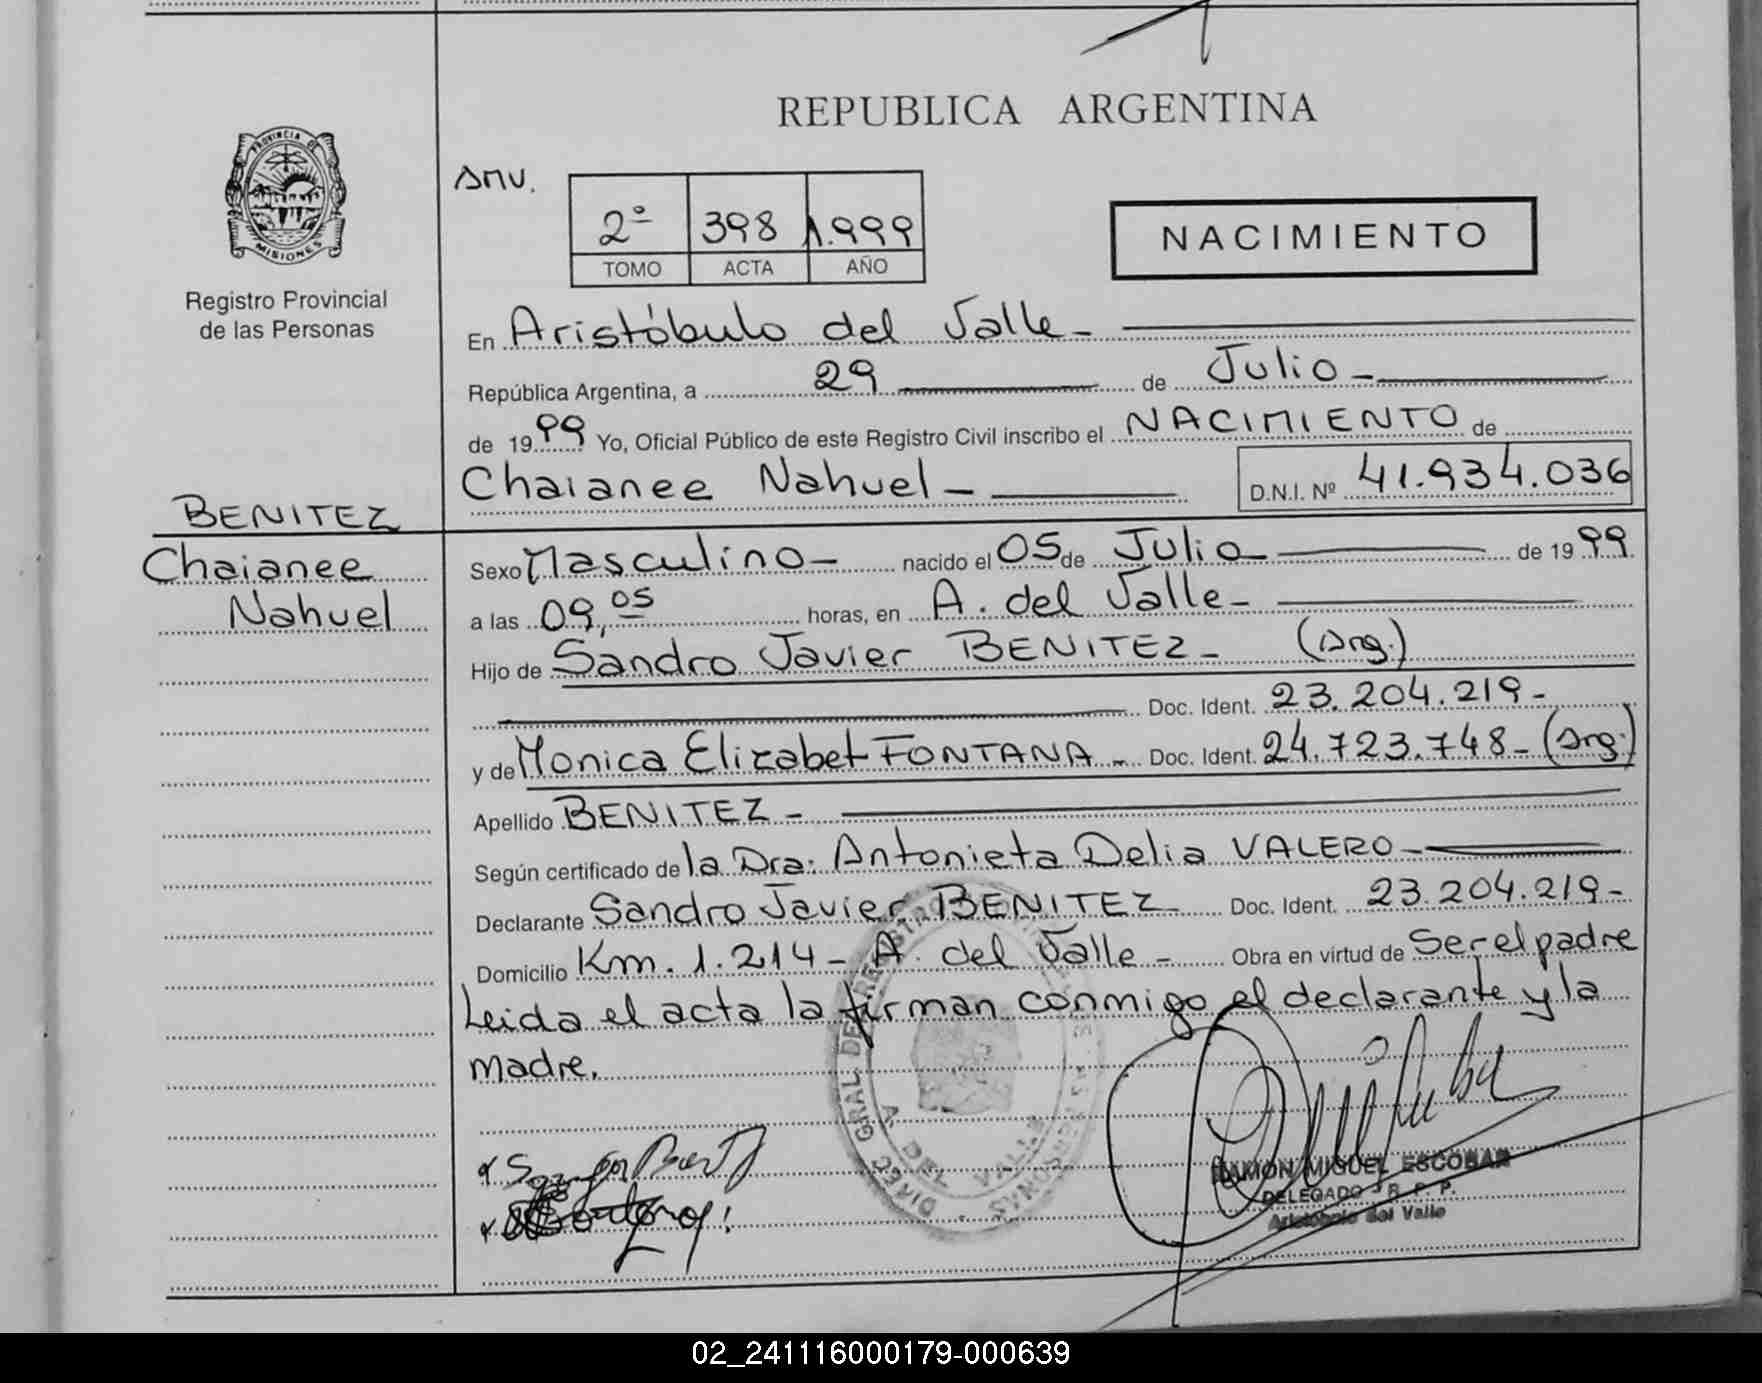 REPUBLICA ARGENTINA
PROVINCIA DE
MISIONES
Registro Provincial
de las Personas
2º 398 1.999
TOMO ACTA AÑO
NACIMIENTO
En Aristóbulo del Valle -
República Argentina, a 29 de Julio -
de 1999 Yo, Oficial Público de este Registro Civil inscribo el NACIMIENTO de
Chaianee Nahuel - D.N.I. Nº 41.934.036
BENITEZ
Chaianee
Nahuel
Sexo Masculino - nacido el 05 de Julio - de 1999
a las 09,05 horas, en A. del Valle -
Hijo de Sandro Javier BENITEZ - (Arg.)
Doc. Ident. 23.204.219 -
y de Monica Elizabet FONTANA - Doc. Ident. 24.723.748 - (Arg.)
Apellido BENITEZ -
Según certificado de la Dra: Antonieta Delia VALERO -
Declarante Sandro Javier BENITEZ - Doc. Ident. 23.204.219 -
Domicilio Km. 1.214 - A. del Valle - Obra en virtud de Ser el padre
Leida el acta la firman conmigo el declarante y la
madre.
A. DEL VALLE
RAMON MIGUEL ESCOBAR
DELEGADO R. P. P.
Aristóbulo del Valle
02_241116000179-000639